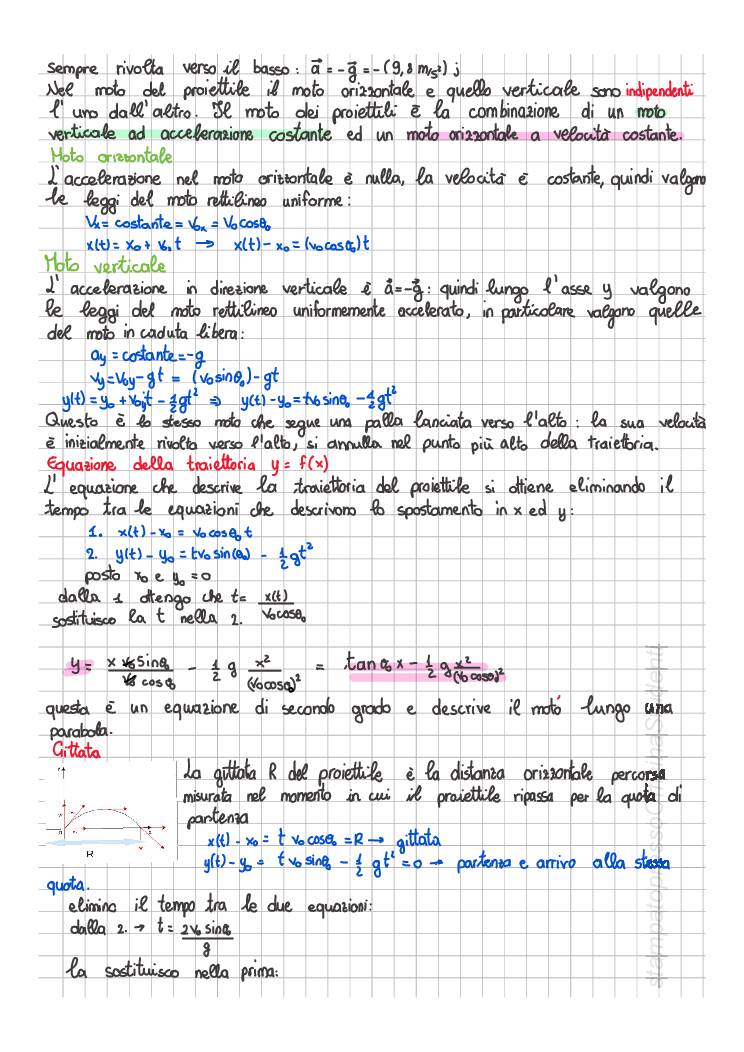 sempre rivolta verso il basso: a⃗ = -g⃗ = -(9,8 m/s²) j
Nel moto del proiettile il moto orizzontale e quello verticale sono indipendenti
l'uno dall'altro. Il moto dei proiettili è la combinazione di un moto
verticale ad accelerazione costante ed un moto orizzontale a velocità costante.
Moto orizzontale
L'accelerazione nel moto orizzontale è nulla, la velocità è costante, quindi valgono
le leggi del moto rettilineo uniforme:
Vx = costante = V₀x = V₀ cosθ₀
x(t) = x₀ + V₀x t → x(t) - x₀ = (v₀ cosθ₀) t
Moto verticale
L'accelerazione in direzione verticale è a⃗ = -g⃗: quindi lungo l'asse y valgono
le leggi del moto rettilineo uniformemente accelerato, in particolare valgono quelle
del moto in caduta libera:
ay = costante = -g
vy = V₀y - gt = (v₀ sinθ₀) - gt
y(t) = y₀ + V₀y t - 1/2 gt² ⇒ y(t) - y₀ = tv₀ sinθ₀ - 1/2 gt²
Questo è lo stesso moto che segue una palla lanciata verso l'alto: la sua velocità
è inizialmente rivolta verso l'alto, si annulla nel punto più alto della traiettoria.
Equazione della traiettoria y = f(x)
L'equazione che descrive la traiettoria del proiettile si ottiene eliminando il
tempo tra le equazioni che descrivono lo spostamento in x ed y:
1. x(t) - x₀ = v₀ cosθ₀ t
2. y(t) - y₀ = tv₀ sin(θ₀) - 1/2 gt²
posto x₀ e y₀ = 0
dalla 1 ottengo che t = x(t)/(V₀ cosθ₀)
sostituisco la t nella 2.
y = (x v₀ sinθ₀)/(v₀ cosθ₀) - 1/2 g x²/(v₀ cosθ₀)² = tanθ₀ x - 1/2 g x²/(v₀ cosθ₀)²
questa è un equazione di secondo grado e descrive il moto lungo una
parabola.
Gittata
La gittata R del proiettile è la distanza orizzontale percorsa
misurata nel momento in cui il proiettile ripassa per la quota di
partenza
x(t) - x₀ = t v₀ cosθ₀ = R → gittata
y(t) - y₀ = t v₀ sinθ₀ - 1/2 gt² = 0 → partenza e arrivo alla stessa
quota.
R
elimino il tempo tra le due equazioni:
dalla 2. → t = (2v₀ sinθ₀)/g
la sostituisco nella prima: